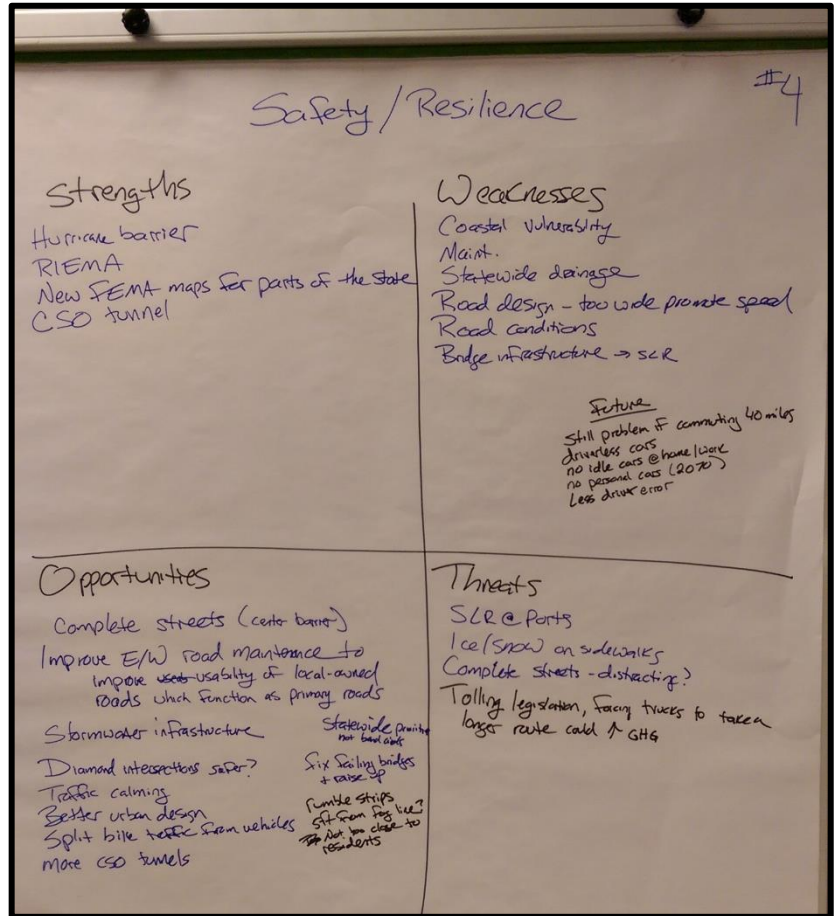 #4
Safety/Resilience
Strengths
Hurricane barrier
RIEMA
New FEMA maps for parts of the state
CSO tunnel
Weaknesses
Coastal Vulnerability
Maint.
Statewide drainage
Road design - too wide promote speed
Road conditions
Bridge infrastructure → SLR
Future
Still problem if commuting 40 miles
driverless cars
no idle cars @ home/work
no personal cars (2070)
Less driver error
Opportunities
Complete streets (center barrier)
Improve E/W road maintenance to
improve usability of local-owned
roads which function as primary roads
Stormwater infrastructure
Diamond intersections safer?
Traffic calming
Better urban design
Split bike traffic from vehicles
more CSO tunnels
Statewide
not
fix failing bridges
+ raise up
rumble strips
5ft from fog line?
Not too close to
residents
Threats
SLR @ Ports
Ice/Snow on sidewalks
Complete streets - distracting?
Tolling legislation, forcing trucks to take a
longer route could ↑ GHG